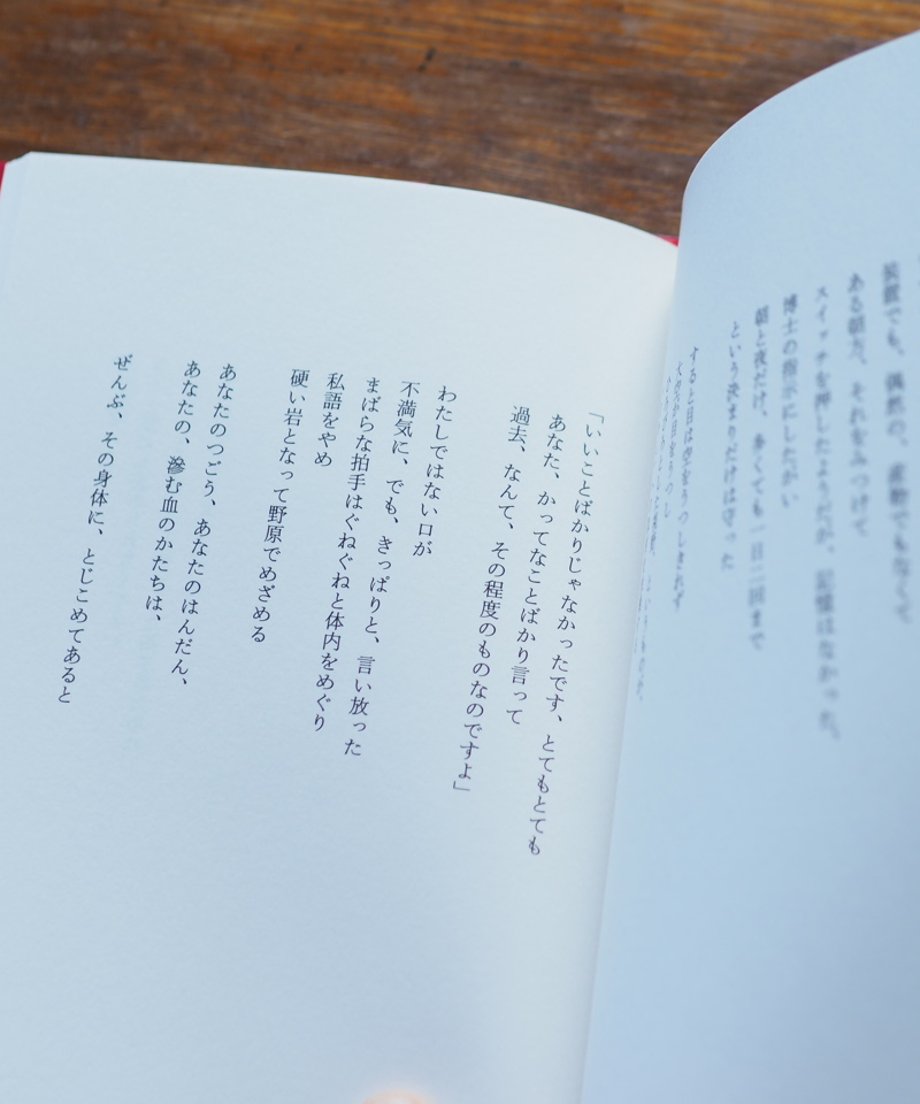 ある朝方、それをみつけて
スイッチを押したようだが、記憶はなかった。
博士の指示にしたがい
朝と夜だけ、多くても一日二回まで
という決まりだけは守った
すると目は空をうつしきれず
「いいことばかりじゃなかったです、とてもとても
あなた、かってなことばかり言って
過去、なんて、その程度のものなのですよ」
わたしではない口が
不満気に、でも、きっぱりと、言い放った
まばらな拍手はぐねぐねと体内をめぐり
私語をやめ
硬い岩となって野原でめざめる
あなたのつごう、あなたのはんだん、
あなたの、滲む血のかたちは、
ぜんぶ、その身体に、とじこめてあると